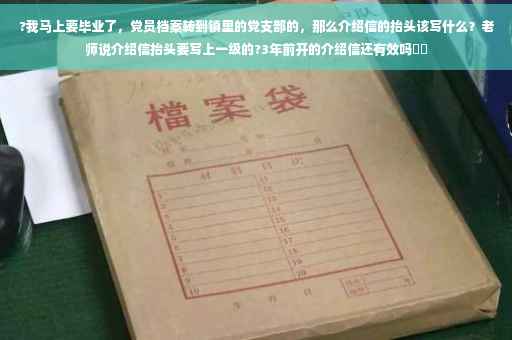 ?我马上要毕业了，党员档案转到镇里的党支部的，那么介绍信的抬头该写什么？老
师说介绍信抬头要写上一级的?3年前开的介绍信还有效吗▯▯
檔案袋
材料目次
1
2
3
4
5
6
7
8
9
10
11
12
13
14
15
16
17
18
19
20
年 月 日